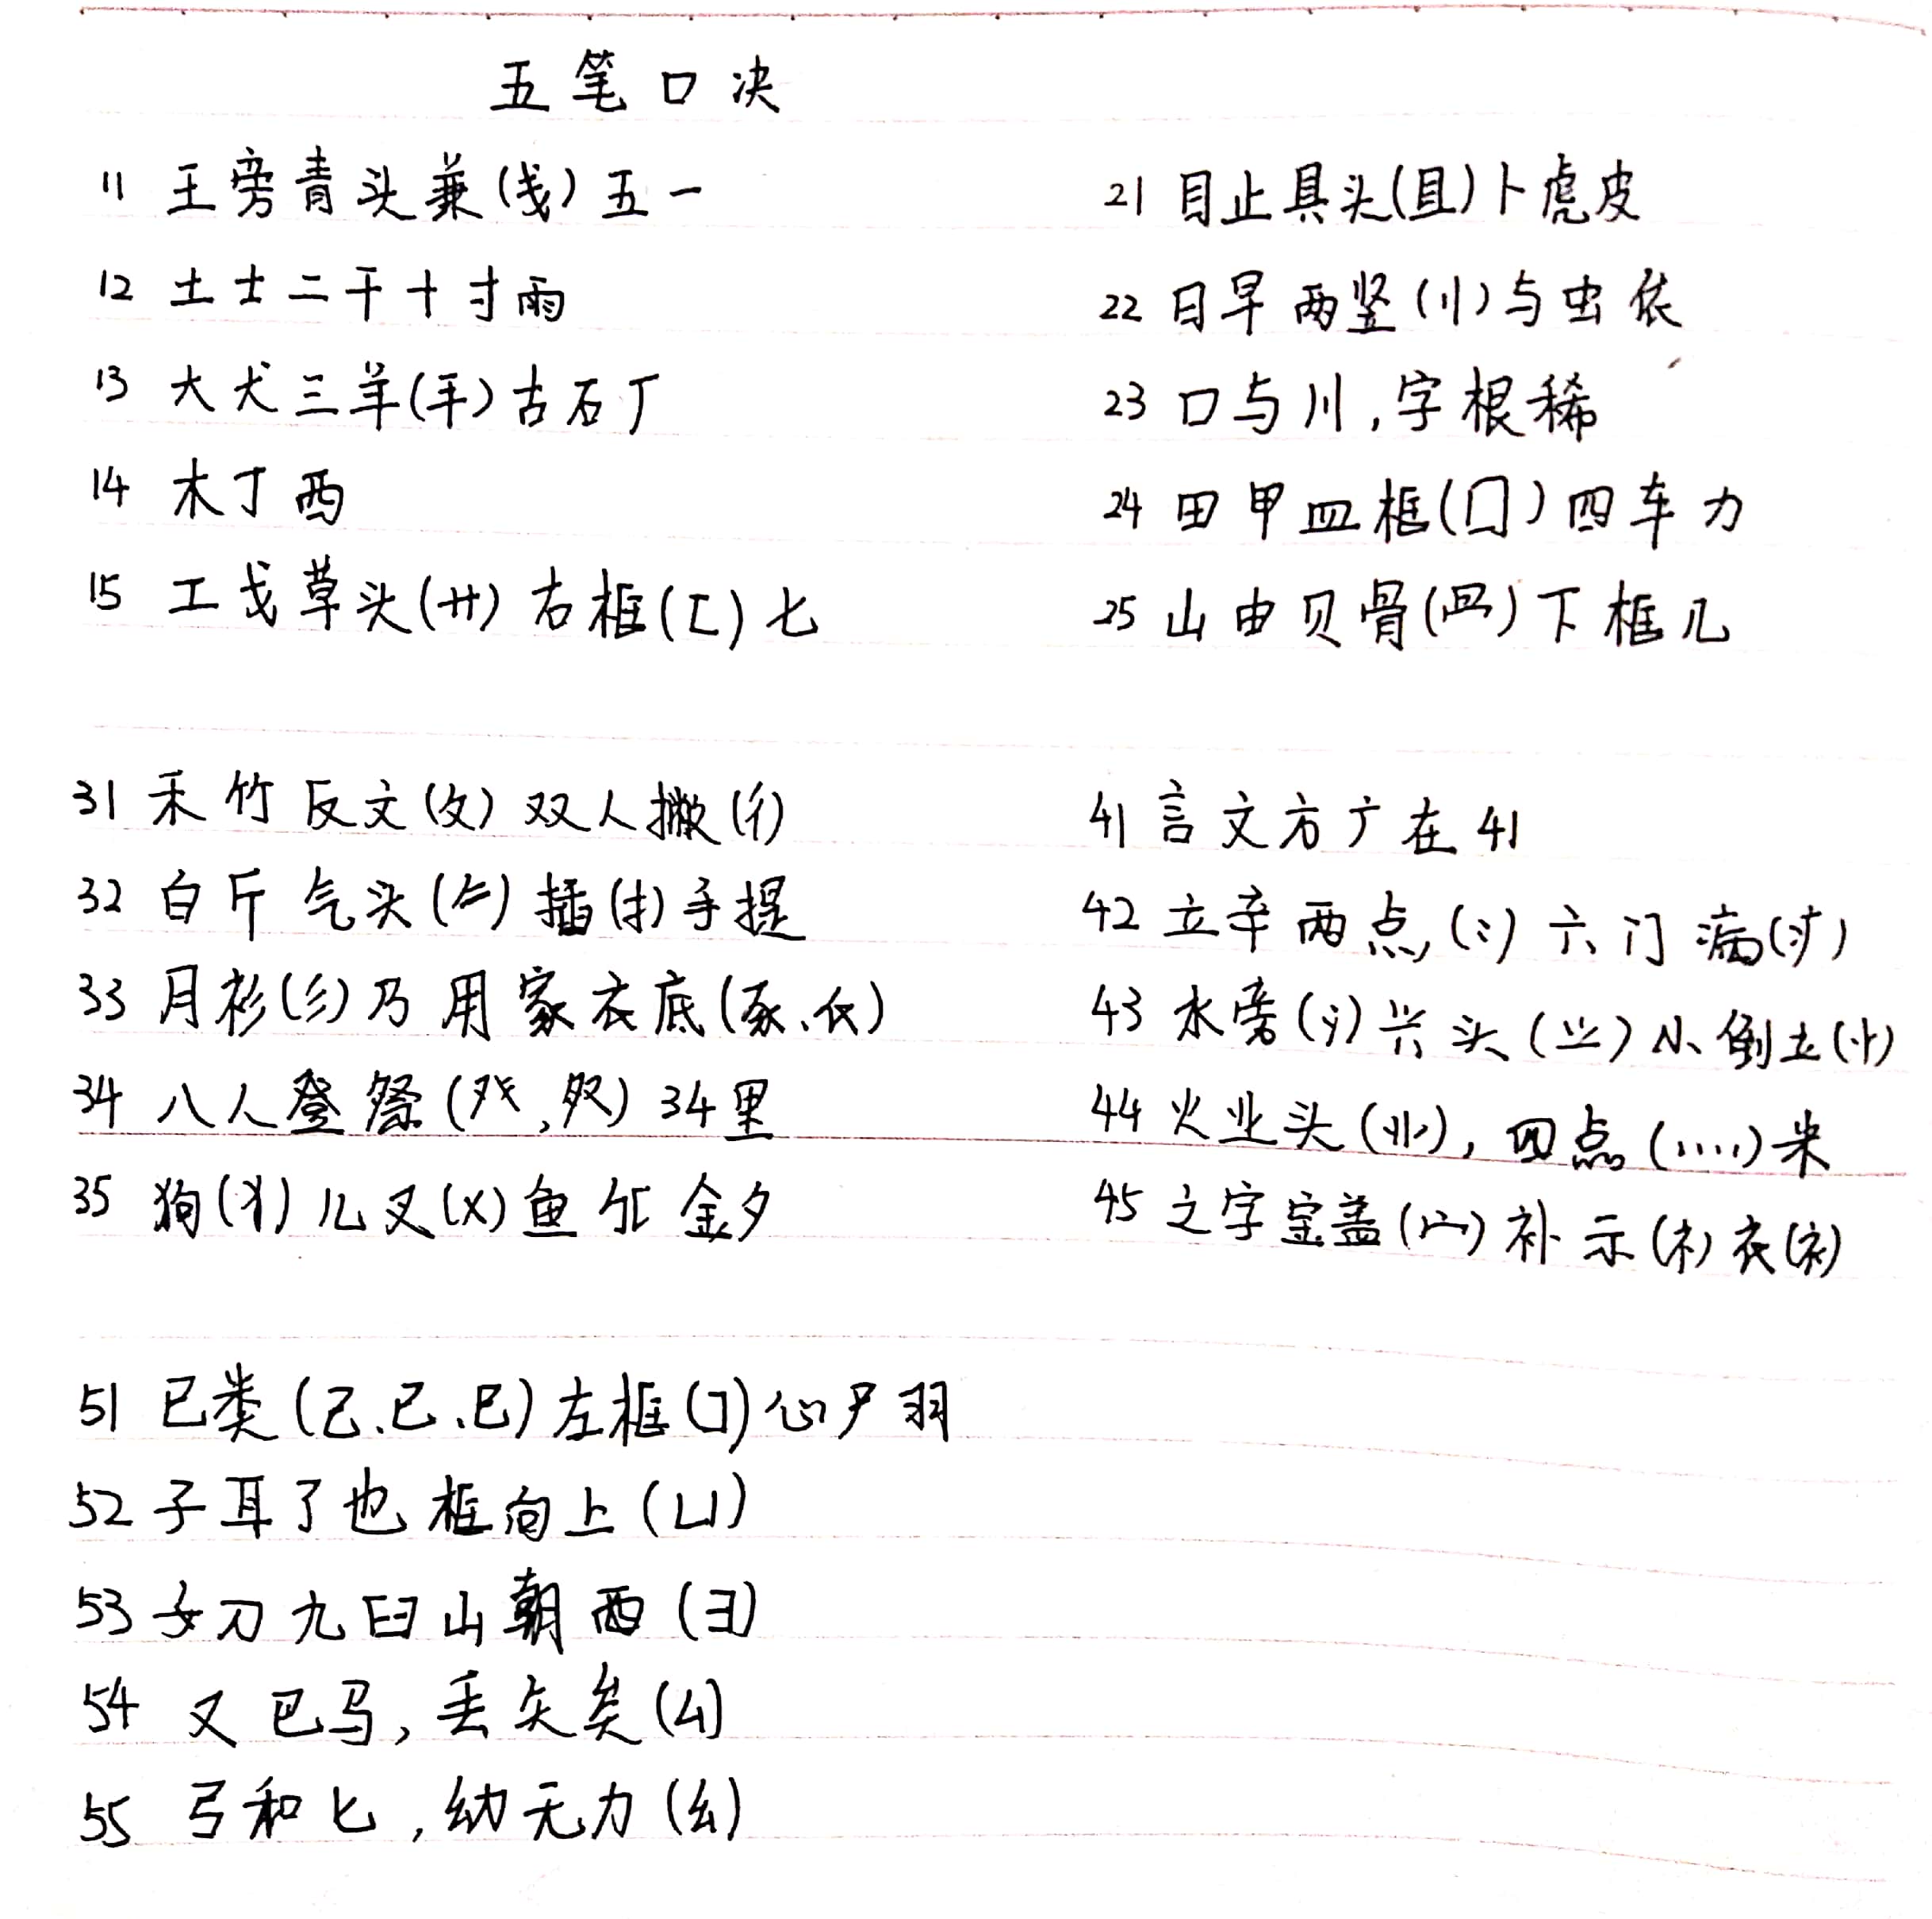 五笔口决
11 王旁青头兼(戋)五一
12 土士二干十寸雨
13 大犬三羊(手)古石厂
14 木丁西
15 工戈草头(廾)右框(匚)七
21 目止具头(且)卜虎皮
22 日早两竖(刂)与虫依
23 口与川,字根稀
24 田甲皿框(囗)四车力
25 山由贝骨(⺫)下框几
31 禾竹反文(攵)双人撇(彳)
32 白斤气头(𠂉)插(扌)手提
33 月衫(彡)乃用家衣底(豕、𧘇)
34 八人登祭(癶,𠂔)34里
35 狗(犭)儿叉(乂)鱼 金夕
41 言文方广在41
42 立辛两点(冫)六门病(疒)
43 水旁(氵)兴头(⺍)小倒土(丬)
44 火业头(⺌),四点(灬)米
45 之字宝盖(宀)补示(礻)衣(衤)
51 已类(己、已、巳)左框(コ)心尸羽
52 子耳了也框向上(凵)
53 女刀九臼山朝西(彐)
54 又巴马,丢矢矣(厶)
55 弓和匕,幼无力(幺)